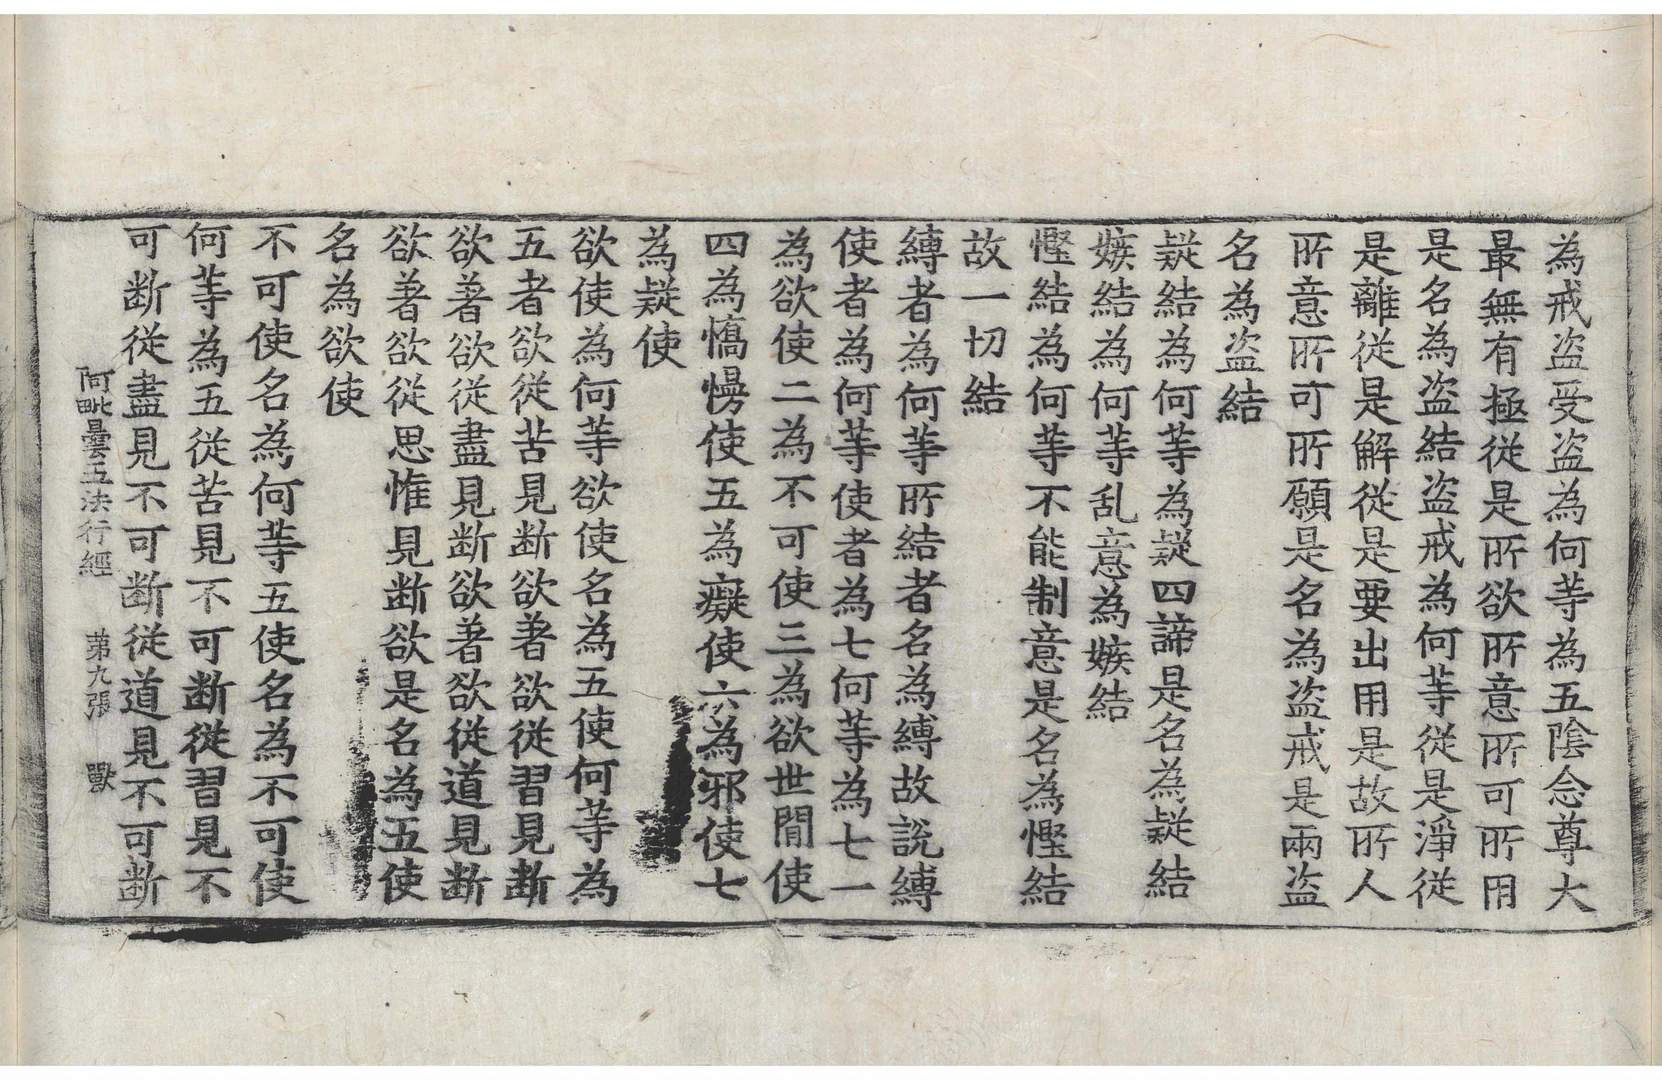 為戒盗受盗為何等為五陰念尊大
最無有極從是所欲所意所可所用
是名為盗結盗戒為何等從是淨從
是離從是解從是要出用是故所人
所意所可所願是名為盗戒是兩盗
名為盗結
疑結為何等為疑四諦是名為疑結
嫉結為何等亂意為嫉結
慳結為何等不能制意是名為慳結
故一切結
縛者為何等所結者名為縛故說縛
使者為何等使者為七何等為七一
為欲使二為不可使三為欲世間使
四為憍慢使五為癡使六為邪使七
為疑使
欲使為何等欲使名為五使何等為
五者欲從苦見断欲著欲從習見断
欲著欲從盡見断欲著欲從道見断
欲著欲從思惟見断欲是名為五使
名為欲使
不可使名為何等五使名為不可使
何等為五從苦見不可断從習見不
可断從盡見不可断從道見不可断
阿毗曇五法行經 第九張 獸